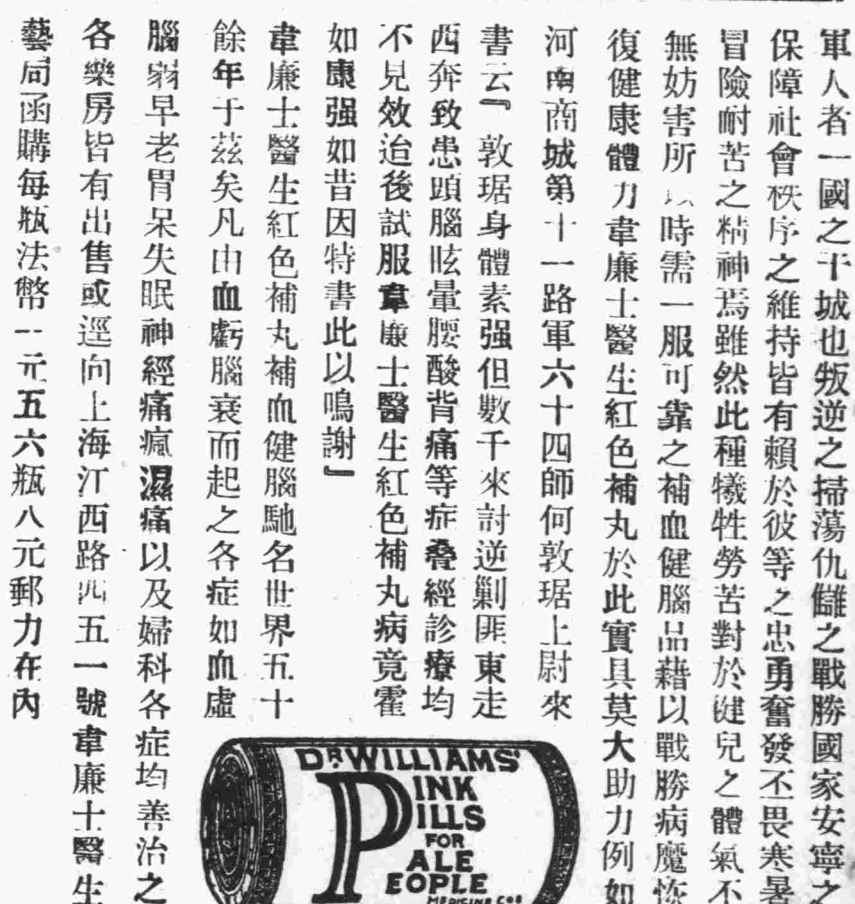 軍人者一國之干城也叛逆之掃蕩仇讎之戰勝國家安寧之
保障社會秩序之維持皆有賴於彼等之忠勇奮發不畏寒暑
冒險耐苦之精神焉雖然此種犧牲勞苦對於健兒之體氣不
無妨害所以時需一服可靠之補血健腦品藉以戰勝病魔恢
復健康體力韋廉士醫生紅色補丸於此實具莫大助力例如
河南商城第十一路軍六十四師何敦琚上尉來
書云『敦琚身體素强但數千來討逆剿匪東走
西奔致患頭腦眩暈腰酸背痛等症叠經診療均
不見效迨後試服韋廉士醫生紅色補丸病竟霍
如康强如昔因特書此以鳴謝』
韋廉士醫生紅色補丸補血健腦馳名世界五十
餘年于茲矣凡由血虧腦衰而起之各症如血虛
腦弱早老胃呆失眠神經痛瘋濕痛以及婦科各症均善治之
各樂房皆有出售或逕向上海江西路四五一號韋廉士醫生
藝局函購每瓶法幣一元五六瓶八元郵力在內
DR WILLIAMS'
PINK
PILLS
FOR
PALE
PEOPLE
MEDICINE CO